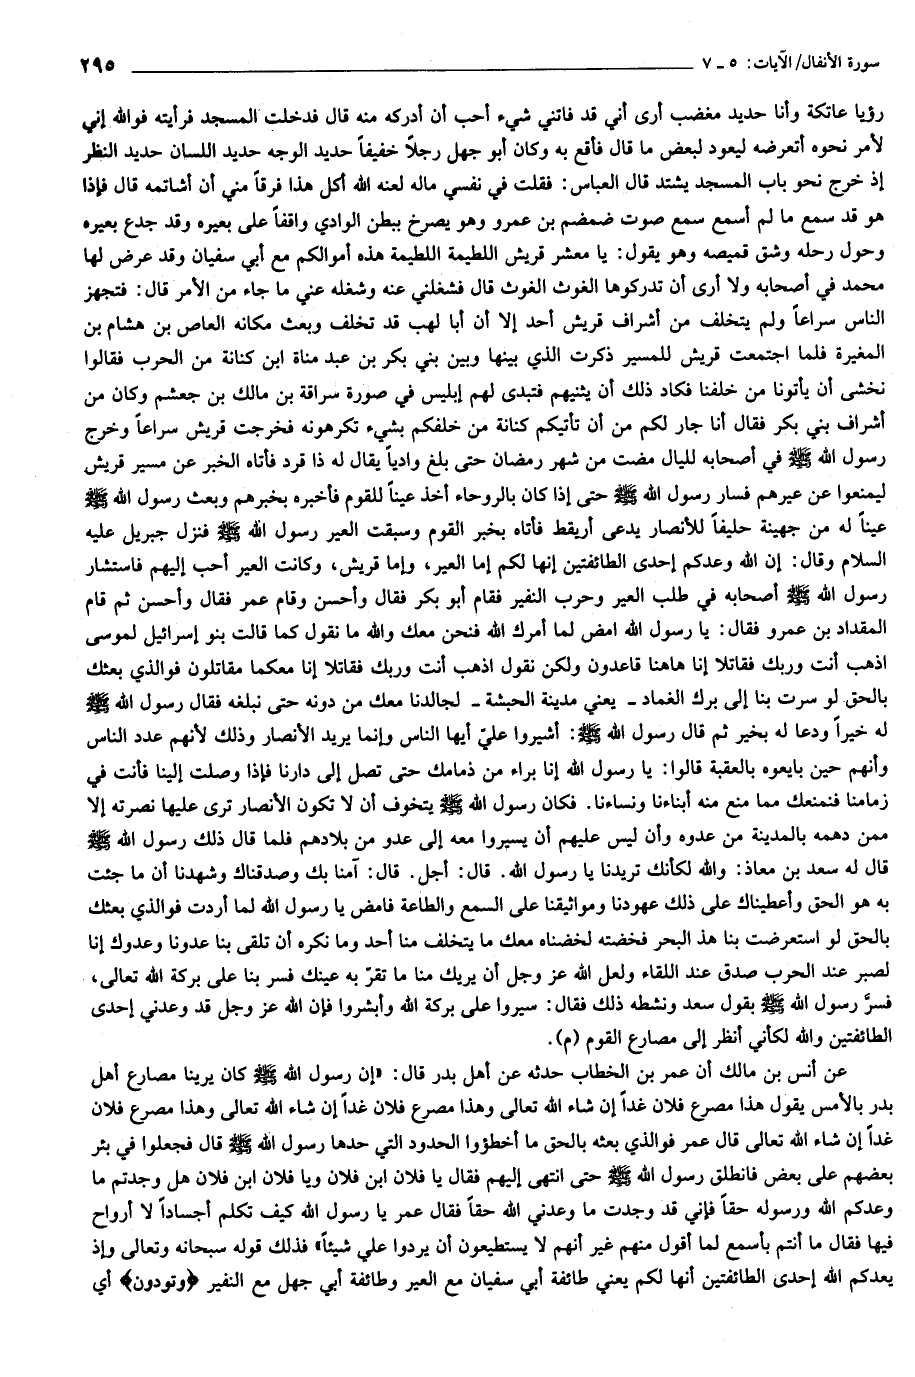 سورة الأنفال/الآيات: ٥ ـ ٧ ٢٩٥
رؤيا عاتكة وأنا حديد مغضب أرى أني قد فاتني شيء أحب أن أدركه منه قال فدخلت المسجد فرأيته فوالله إني
لأمر نحوه أتعرضه ليعود لبعض ما قال فأقع به وكان أبو جهل رجلاً خفيفاً حديد الوجه حديد اللسان حديد النظر
إذ خرج نحو باب المسجد يشتد قال العباس: فقلت في نفسي ماله لعنه الله أكل هذا فرقاً مني أن أشاتمه قال فإذا
هو قد سمع ما لم أسمع سمع صوت ضمضم بن عمرو وهو يصرخ ببطن الوادي واقفاً على بعيره وقد جدع بعيره
وحول رحله وشق قميصه وهو يقول: يا معشر قريش اللطيمة اللطيمة هذه أموالكم مع أبي سفيان وقد عرض لها
محمد في أصحابه ولا أرى أن تدركوها الغوث الغوث قال فشغلني عنه وشغله عني ما جاء من الأمر قال: فتجهز
الناس سراعاً ولم يتخلف من أشراف قريش أحد إلا أن أبا لهب قد تخلف وبعث مكانه العاص بن هشام بن
المغيرة فلما اجتمعت قريش للمسير ذكرت الذي بينها وبين بني بكر بن عبد مناة ابن كنانة من الحرب فقالوا
نخشى أن يأتونا من خلفنا فكاد ذلك أن يثنيهم فتبدى لهم إبليس في صورة سراقة بن مالك بن جعشم وكان من
أشراف بني بكر فقال أنا جار لكم من أن تأتيكم كنانة من خلفكم بشيء تكرهونه فخرجت قريش سراعاً وخرج
رسول الله ﷺ في أصحابه لليال مضت من شهر رمضان حتى بلغ وادياً يقال له ذا قرد فأتاه الخبر عن مسير قريش
ليمنعوا عن عيرهم فسار رسول الله ﷺ حتى إذا كان بالروحاء أخذ عيناً للقوم فأخبره بخبرهم وبعث رسول الله ﷺ
عيناً له من جهينة حليفاً للأنصار يدعى أريقط فأتاه بخبر القوم وسبقت العير رسول الله ﷺ فنزل جبريل عليه
السلام وقال: إن الله وعدكم إحدى الطائفتين إنها لكم إما العير، وإما قريش، وكانت العير أحب إليهم فاستشار
رسول الله ﷺ أصحابه في طلب العير وحرب النفير فقام أبو بكر فقال وأحسن وقام عمر فقال وأحسن ثم قام
المقداد بن عمرو فقال: يا رسول الله امض لما أمرك الله فنحن معك والله ما نقول كما قالت بنو إسرائيل لموسى
اذهب أنت وربك فقاتلا إنا هاهنا قاعدون ولكن نقول اذهب أنت وربك فقاتلا إنا معكما مقاتلون فوالذي بعثك
بالحق لو سرت بنا إلى برك الغماد ـ يعني مدينة الحبشة ـ لجالدنا معك من دونه حتى نبلغه فقال رسول الله ﷺ
له خيراً ودعا له بخير ثم قال رسول الله ﷺ: أشيروا عليّ أيها الناس وإنما يريد الأنصار وذلك لأنهم عدد الناس
وأنهم حين بايعوه بالعقبة قالوا: يا رسول الله إنا براء من ذمامك حتى تصل إلى دارنا فإذا وصلت إلينا فأنت في
زمامنا فنمنعك مما منع منه أبناءنا ونساءنا. فكان رسول الله ﷺ يتخوف أن لا تكون الأنصار ترى عليها نصرته إلا
ممن دهمه بالمدينة من عدوه وأن ليس عليهم أن يسيروا معه إلى عدو من بلادهم فلما قال ذلك رسول الله ﷺ
قال له سعد بن معاذ: والله لكأنك تريدنا يا رسول الله. قال: أجل. قال: آمنا بك وصدقناك وشهدنا أن ما جئت
به هو الحق وأعطيناك على ذلك عهودنا ومواثيقنا على السمع والطاعة فامض يا رسول الله لما أردت فوالذي بعثك
بالحق لو استعرضت بنا هذ البحر فخضته لخضناه معك ما يتخلف منا أحد وما نكره أن تلقى بنا عدونا وعدوك إنا
لصبر عند الحرب صدق عند اللقاء ولعل الله عز وجل أن يريك منا ما تقرّ به عينك فسر بنا على بركة الله تعالى،
فسرَّ رسول الله ﷺ بقول سعد ونشطه ذلك فقال: سيروا على بركة الله وأبشروا فإن الله عز وجل قد وعدني إحدى
الطائفتين والله لكأني أنظر إلى مصارع القوم (م).
عن أنس بن مالك أن عمر بن الخطاب حدثه عن أهل بدر قال: «إن رسول الله ﷺ كان يرينا مصارع أهل
بدر بالأمس يقول هذا مصرع فلان غداً إن شاء الله تعالى وهذا مصرع فلان غداً إن شاء الله تعالى وهذا مصرع فلان
غداً إن شاء الله تعالى قال عمر فوالذي بعثه بالحق ما أخطؤوا الحدود التي حدها رسول الله ﷺ قال فجعلوا في بئر
بعضهم على بعض فانطلق رسول الله ﷺ حتى انتهى إليهم فقال يا فلان ابن فلان ويا فلان ابن فلان هل وجدتم ما
وعدكم الله ورسوله حقاً فإني قد وجدت ما وعدني الله حقاً فقال عمر يا رسول الله كيف تكلم أجساداً لا أرواح
فيها فقال ما أنتم بأسمع لما أقول منهم غير أنهم لا يستطيعون أن يردوا علي شيئاً» فذلك قوله سبحانه وتعالى وإذ
يعدكم الله إحدى الطائفتين أنها لكم يعني طائفة أبي سفيان مع العير وطائفة أبي جهل مع النفير ﴿وتودون﴾ أي